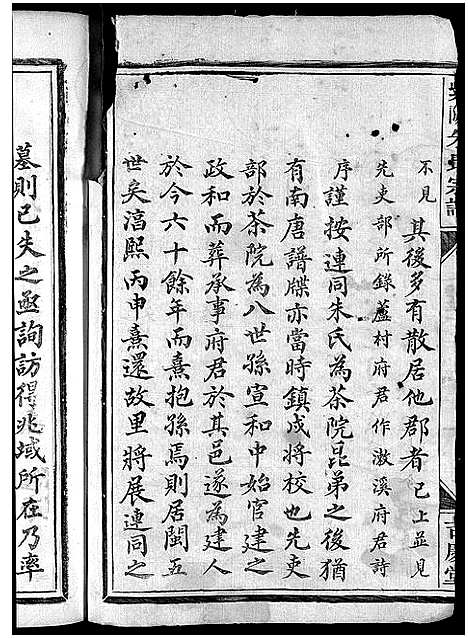 不見其後多有散居他郡者已上並見
先吏部所錄蘆村府君作漵溪府君詩
序謹按連同朱氏為茶院昆弟之後猶
有南唐譜牒亦當時鎮戍將校也先吏
部於茶院為八世孫宣和中始官建之
政和而葬承事府君於其邑遂為建人
於今六十餘年而熹抱孫焉則居閩五
世矣淳熙丙申熹還故里將展連同之
墓則已失之亟詢訪得兆域所在乃率